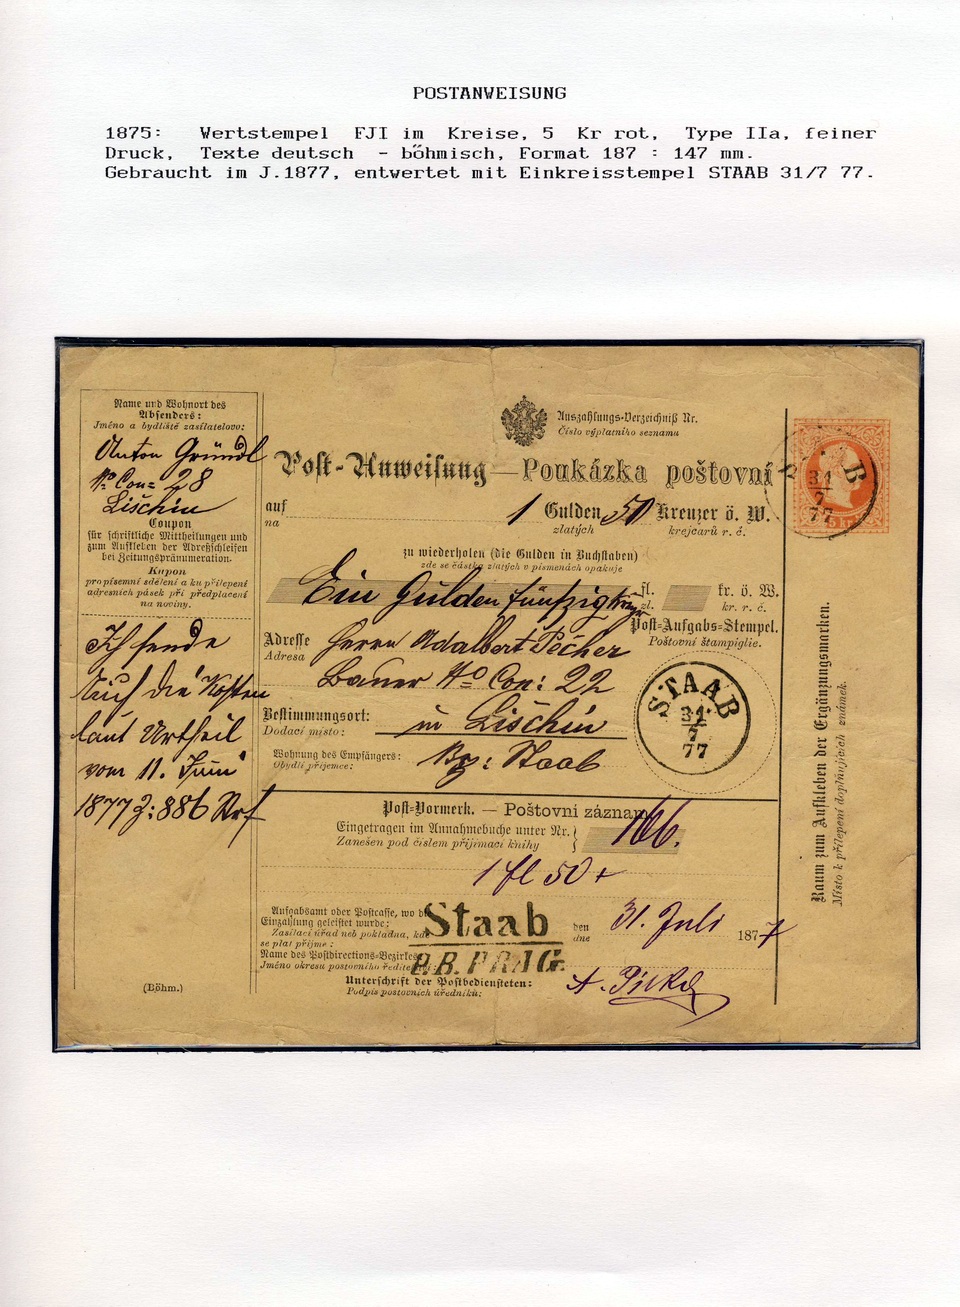 POSTANWEISUNG
1875: Wertstempel FJI im Kreise, 5 Kr rot, Type IIa, feiner
Druck, Texte deutsch - böhmisch, Format 187 : 147 mm.
Gebraucht im J.1877, entwertet mit Einkreisstempel STAAB 31/7 77.
Name und Wohnort des
Absenders:
Jméno a bydliště zasílatelovo:
Anton Gründl
No Con= 28
Lischin
Coupon
für schriftliche Mittheilungen und
zum Aufkleben der Adreßschleifen
bei Zeitungspränumeration.
Kupon
pro písemní sdělení a ku přilepení
adresních pásek při předplacení
na noviny.
Ich sende
auf die Kosten
laut Urtheil
vom 11. Juni
1877 Z: 886 Str
(Böhm.)
Auszahlungs-Verzeichniß Nr.
Číslo výplatního seznamu
Post-Anweisung — Poukázka poštovní
auf 1 Gulden 50 Kreuzer ö. W.
na zlatých krejcarů r. č.
zu wiederholen (die Gulden in Buchstaben)
zde se částka zlatých v písmenách opakuje
Ein Gulden fünfzig fl. kr. ö. W.
zl. kr. r. č.
Post-Aufgabs-Stempel.
Poštovní štampiglie.
Adresse Herrn Adalbert Pecher
Adresa
Bauer No Con: 22
Bestimmungsort: in Lischin
Dodací místo:
Wohnung des Empfängers: Bz: Staab
Obydlí příjemce:
STAAB
31
7
77
Post-Vormerk. — Poštovní záznam
Eingetragen im Annahmebuche unter Nr. 166.
Zanešen pod číslem přijímací knihy
1 fl 50 +
Aufgabsamt oder Postcasse, wo die
Einzahlung geleistet wurde:
Zasílací úřad neb pokladna, kde
se plat přijme:
Staab
den 31. Juli 1877
dne
Name des Postdirections-Bezirkes
Jméno okresu poštovního ředitel
P.B. PRAG.
Unterschrift der Postbediensteten:
Podpis poštovních úředníků:
31
7
77
B
5 kr
Raum zum Aufkleben der Ergänzungsmarken.
Místo k přilepení doplňujících známek.